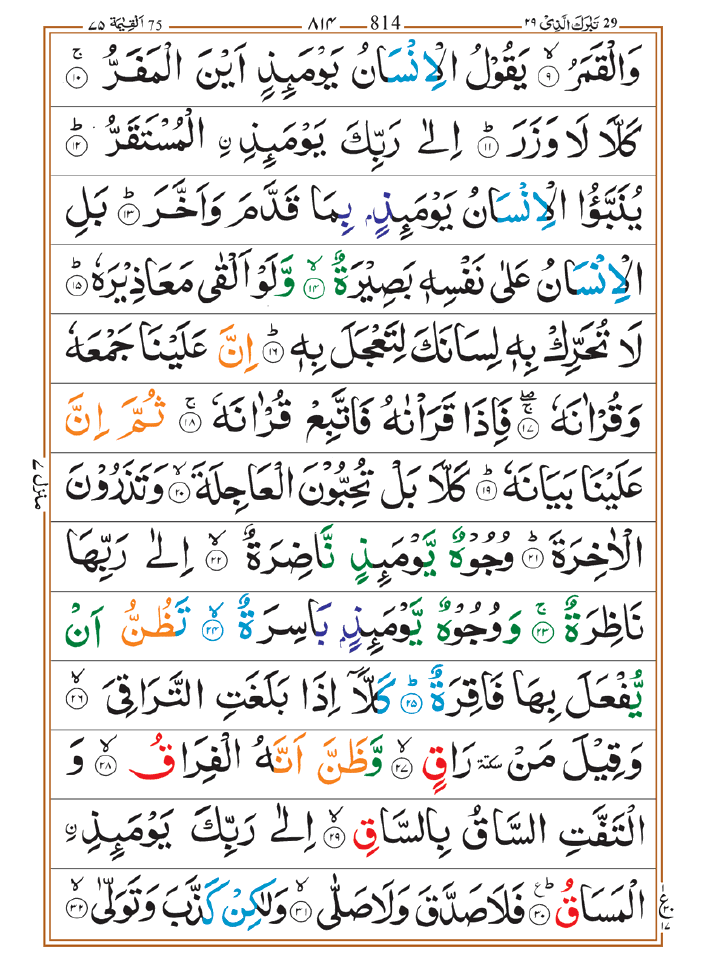 29 تَبٰرَكَ الَّذِىْ ٢٩ 814 ٨١٤ 75 اَلْقِيٰمَة ٧٥
وَالْقَمَرُ ۙ‏ ٩ يَقُوْلُ الْاِنْسَانُ يَوْمَئِذٍ اَيْنَ الْمَفَرُّ ۚ‏ ١٠
كَلَّا لَا وَزَرَ ؕ‏ ١١ اِلٰى رَبِّكَ يَوْمَئِذِ ۨ الْمُسْتَقَرُّ ؕ‏ ١٢
يُنَبَّؤُا الْاِنْسَانُ يَوْمَئِذٍۢ بِمَا قَدَّمَ وَاَخَّرَ ؕ‏ ١٣ بَلِ
الْاِنْسَانُ عَلٰى نَفْسِهٖ بَصِيْرَةٌ ۙ‏ ١٤ وَّلَوْ اَلْقٰى مَعَاذِيْرَهٗ ؕ‏ ١٥
لَا تُحَرِّكْ بِهٖ لِسَانَكَ لِتَعْجَلَ بِهٖ ؕ‏ ١٦ اِنَّ عَلَيْنَا جَمْعَهٗ
وَقُرْاٰنَهٗ ۖۚ‏ ١٧ فَاِذَا قَرَاْنٰهُ فَاتَّبِعْ قُرْاٰنَهٗ ۚ‏ ١٨ ثُمَّ اِنَّ
عَلَيْنَا بَيَانَهٗ ؕ‏ ١٩ كَلَّا بَلْ تُحِبُّوْنَ الْعَاجِلَةَ ۙ‏ ٢٠ وَتَذَرُوْنَ
الْاٰخِرَةَ ؕ‏ ٢١ وُجُوْهٌ يَّوْمَئِذٍ نَّاضِرَةٌ ۙ‏ ٢٢ اِلٰى رَبِّهَا
نَاظِرَةٌ ۚ‏ ٢٣ وَوُجُوْهٌ يَّوْمَئِذٍۢ بَاسِرَةٌ ۙ‏ ٢٤ تَظُنُّ اَنْ
يُّفْعَلَ بِهَا فَاقِرَةٌ ؕ‏ ٢٥ كَلَّاۤ اِذَا بَلَغَتِ التَّرَاقِىَ ۙ‏ ٢٦
وَقِيْلَ مَنْ سكتة رَاقٍ ۙ‏ ٢٧ وَّظَنَّ اَنَّهُ الْفِرَاقُ ۙ‏ ٢٨ وَ
الْتَفَّتِ السَّاقُ بِالسَّاقِ ۙ‏ ٢٩ اِلٰى رَبِّكَ يَوْمَئِذِ ۨ
الْمَسَاقُ ؕ ع ٣٠ فَلَا صَدَّقَ وَلَا صَلّٰى ۙ‏ ٣١ وَلٰكِنْ كَذَّبَ وَتَوَلّٰى ۙ‏ ٣٢
منزل ٧
ع ٢٠ ١٧